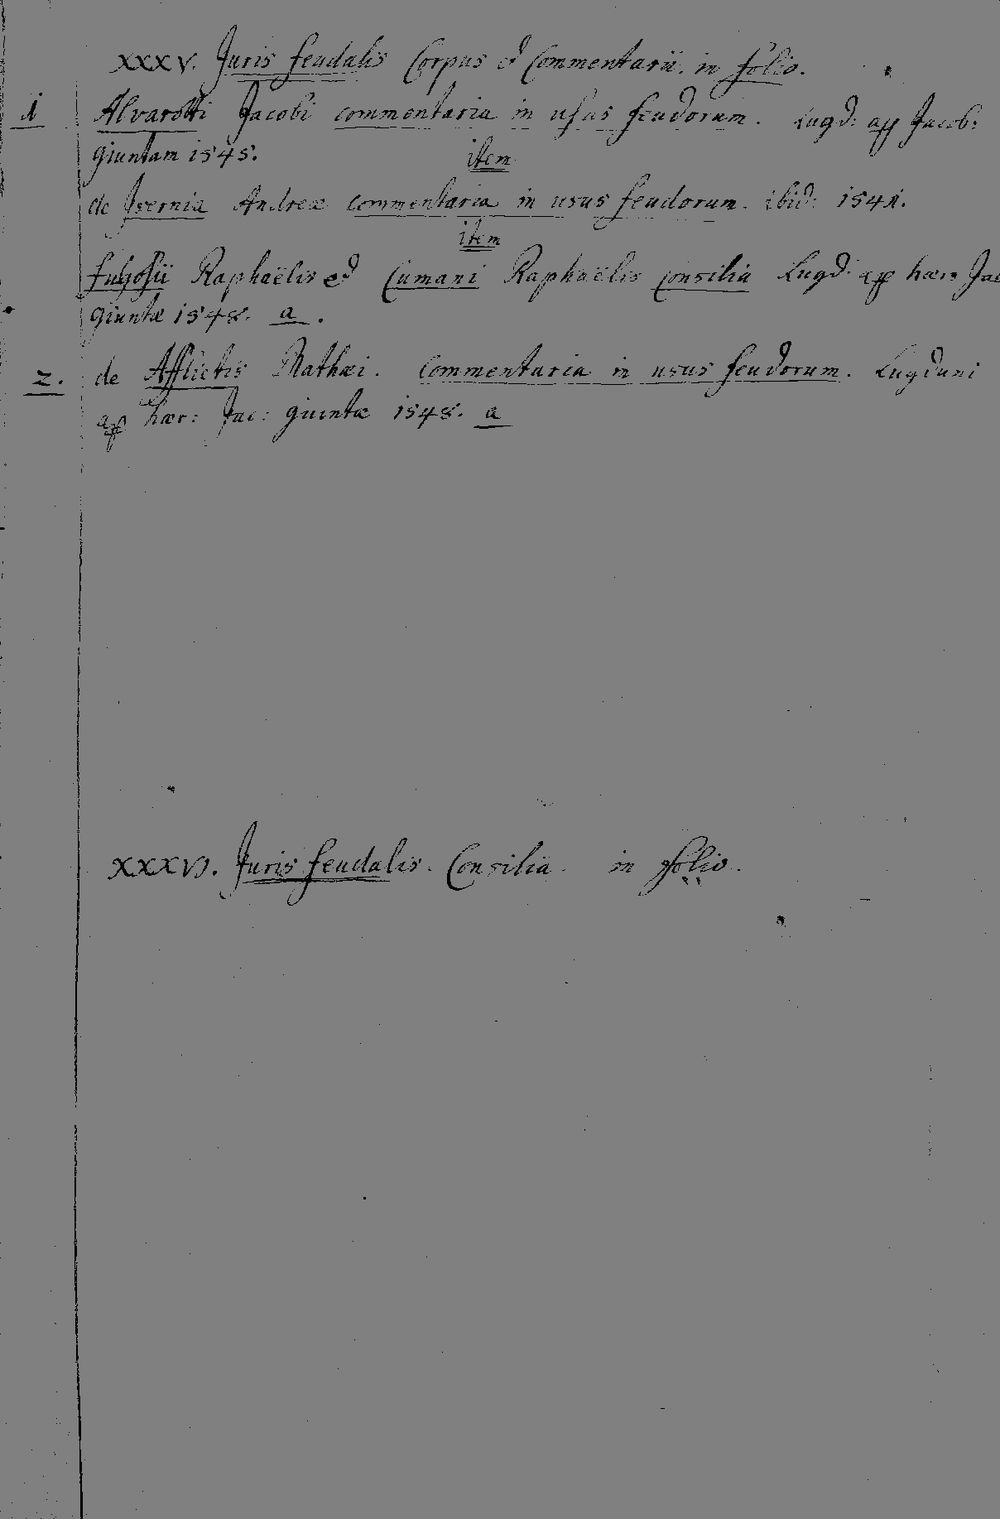 XXXV. Juris feudalis Corpus et Commentarii. in folio.
1 Alvarotti Jacobi commentaria in usus feudorum. Lugd: ap Jacob:
Giuntam 1545.
item
de Isernia Andreæ commentaria in usus feudorum. ibid: 1541.
item
Fulgosii Raphaëlis et Cumani Raphaëlis consilia Lugd: ap hær: Jac
Giuntæ 1548. a.
2. de Afflictis Mathæi. Commentaria in usus feudorum. Lugduni
ap hær: Jac: Giuntæ 1548. a
XXXVI. Juris feudalis. Consilia. in folio.